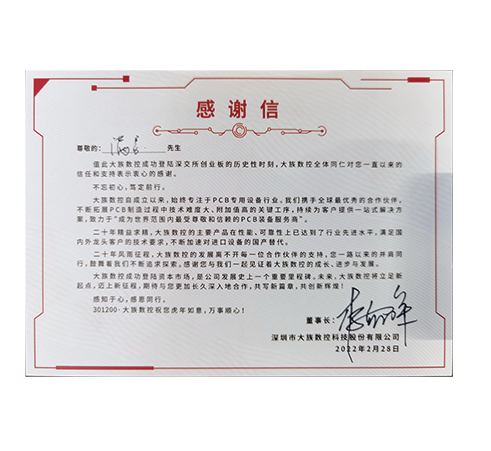 感谢信
尊敬的: 先生
值此大族数控成功登陆深交所创业板的历史性时刻,大族数控全体同仁对您一直以来的
信任和支持表示衷心的感谢。
不忘初心,笃定前行。
大族数控自成立以来,始终专注于PCB专用设备行业。我们携手全球最优秀的合作伙伴,
不断拓展PCB制造过程中技术难度大、附加值高的关键工序,持续为客户提供一站式解决方
案,致力于“成为世界范围内最受尊敬和信赖的PCB装备服务商”。
二十年精益求精,大族数控的主要产品在性能,可靠性上已达到了行业先进水平,满足国
内外龙头客户的技术要求,不断加速对进口设备的国产替代。
二十年风雨征程,大族数控的发展离不开每一位合作伙伴的支持,您一路以来的并肩同
行,鼓舞着我们不断追求探索。感谢您与我们一起见证着大族数控的成长、进步与发展。
大族数控成功登陆资本市场,是公司发展史上一个重要里程碑。未来,大族数控将立足新
起点,迈上新征程,期待与您更加长久深入地合作,共写新篇章,共创新辉煌!
感知于心,感恩同行。
301200·大族数控祝您虎年如意,万事顺心!
董事长:
深圳市大族数控科技股份有限公司
2022年2月28日